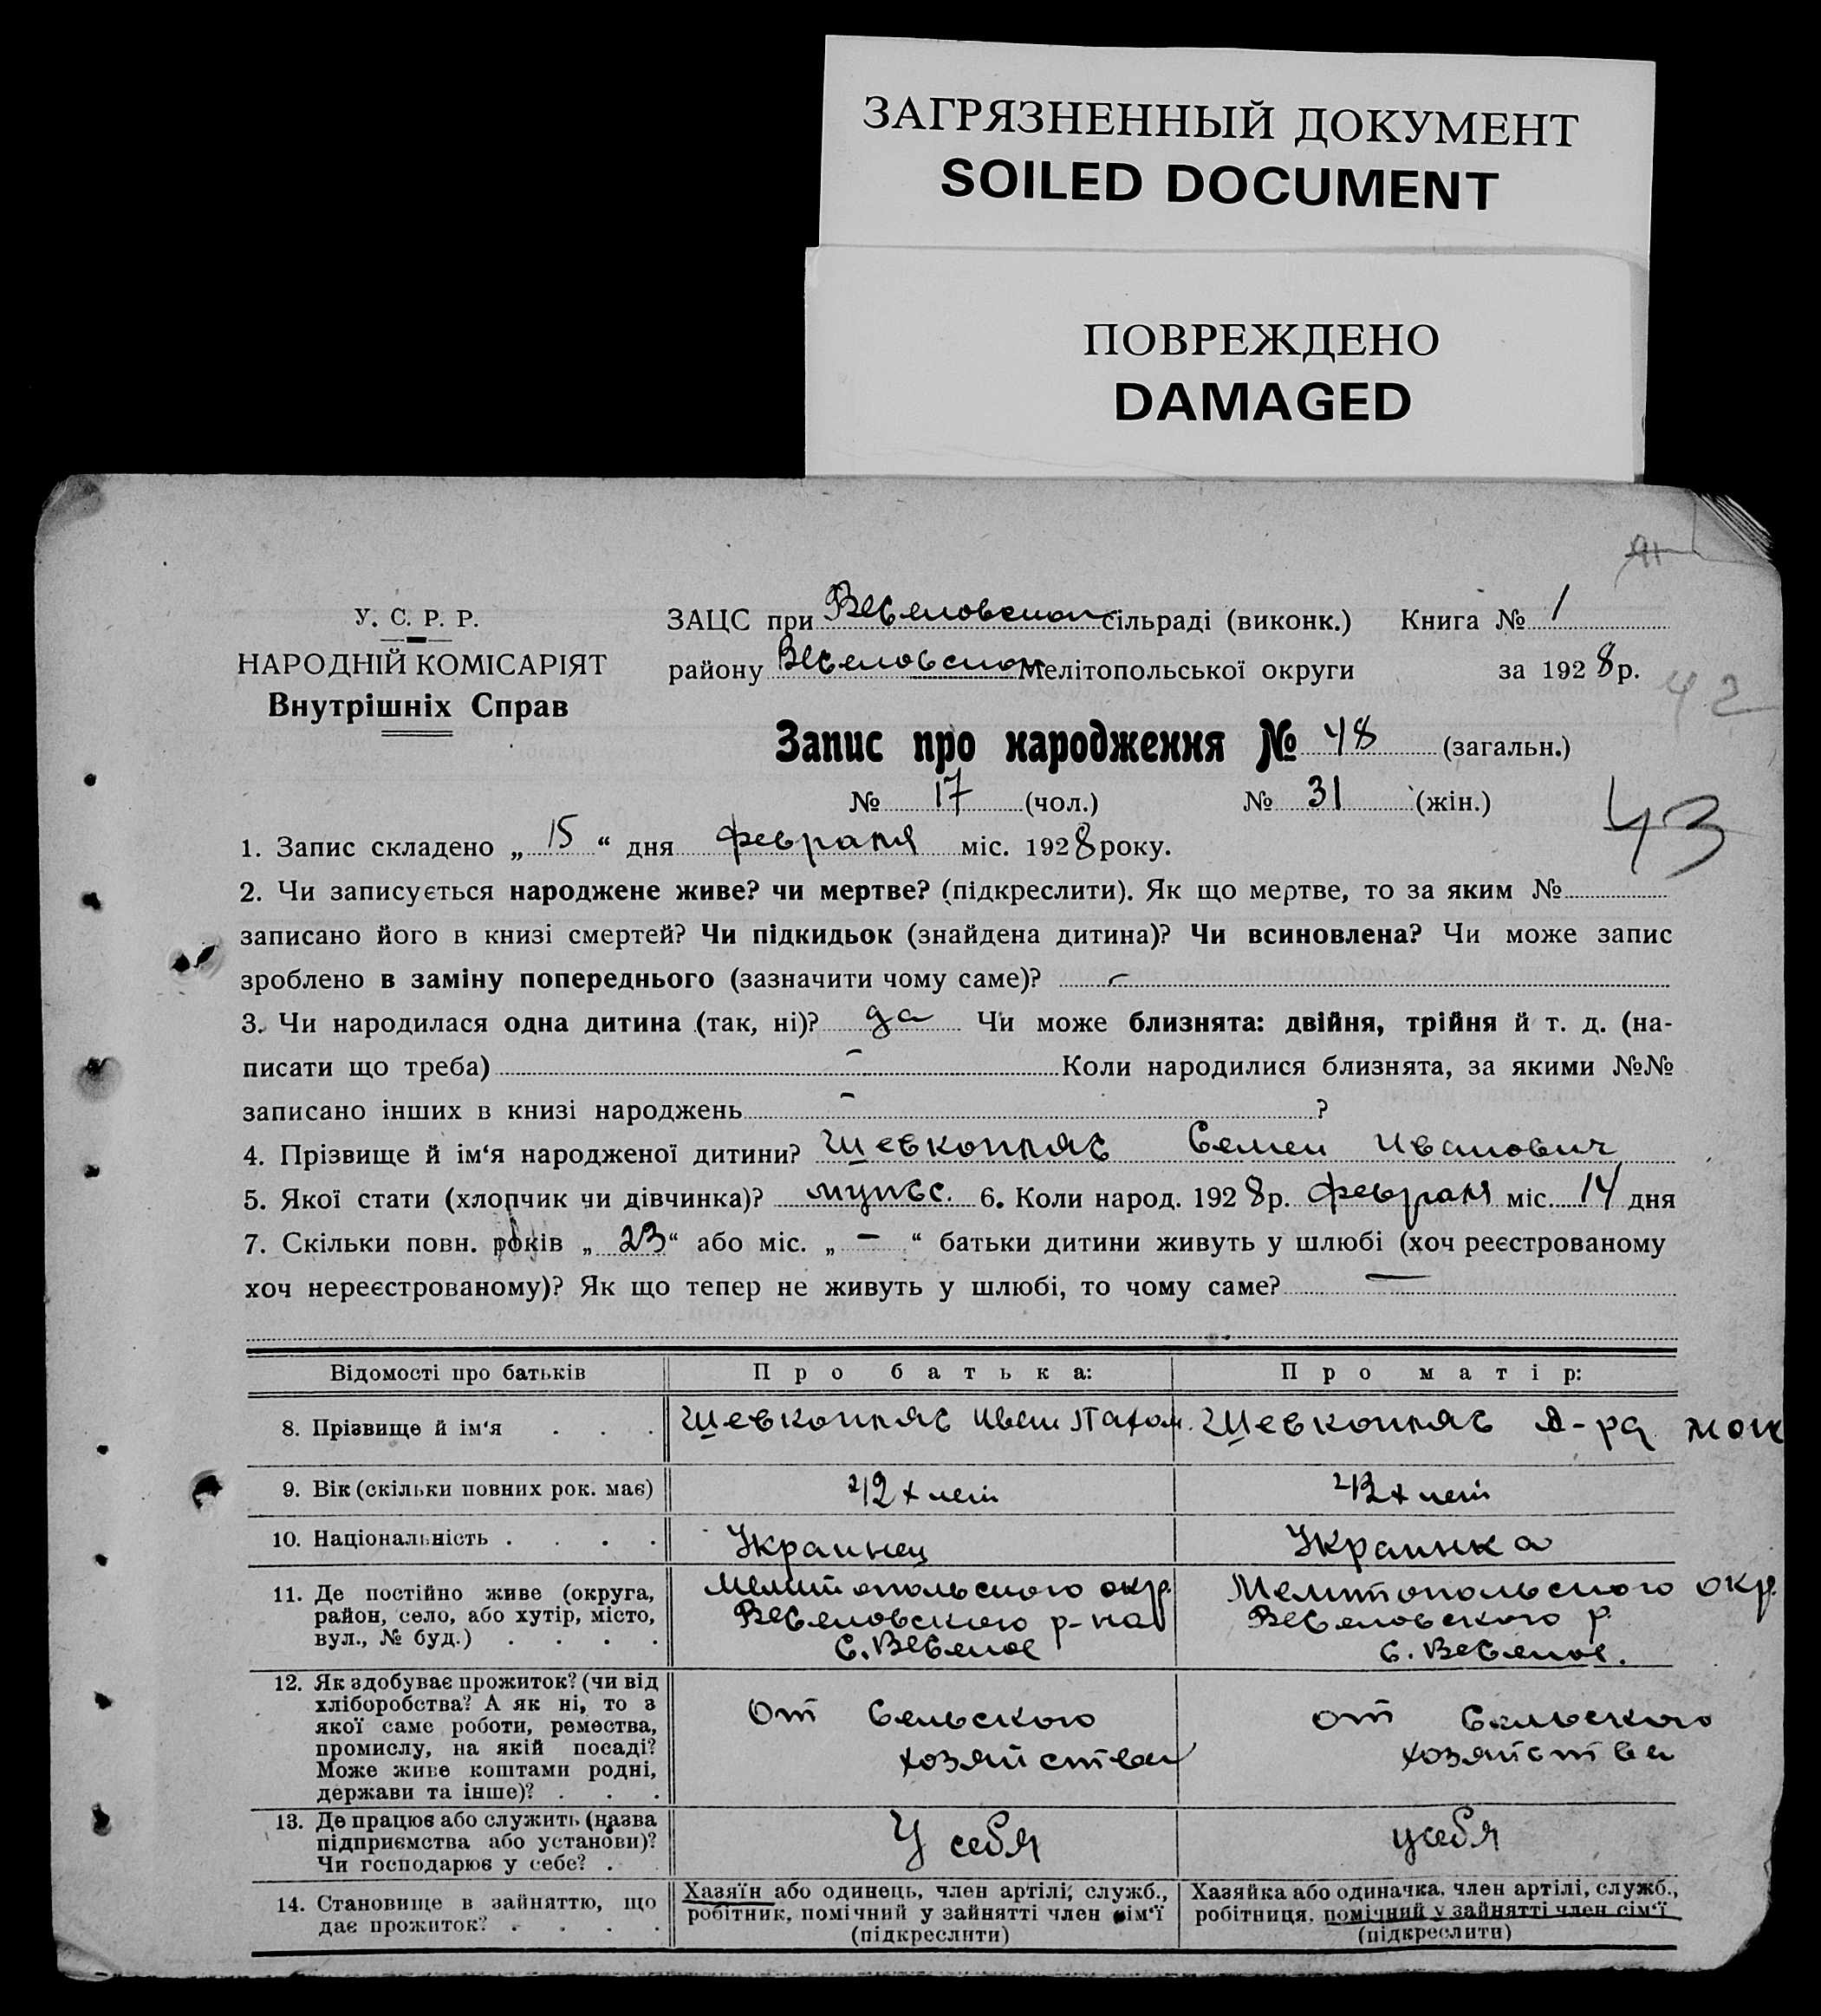 ЗАГРЯЗНЕННЫЙ ДОКУМЕНТ
SOILED DOCUMENT
ПОВРЕЖДЕНО
DAMAGED
У. С. Р. Р.
НАРОДНІЙ КОМІСАРІЯТ
Внутрішніх Справ
ЗАЦС при Веселовском сільраді (виконк.) Книга № 1
району Веселовском Мелітопольської округи за 1928 р.
42
Запис про народження № 48 (загальн.)
№ 17 (чол.) № 31 (жін.)
43
1. Запис складено „ 15 “ дня февраля міс. 1928 року.
2. Чи записується народжене живе? чи мертве? (підкреслити). Як що мертве, то за яким №
записано його в книзі смертей? Чи підкидьок (знайдена дитина)? Чи всиновлена? Чи може запис
зроблено в заміну попереднього (зазначити чому саме)? –
3. Чи народилася одна дитина (так, ні)? да Чи може близнята: двійня, трійня й т. д. (на-
писати що треба) – Коли народилися близнята, за якими №№
записано інших в книзі народжень – ?
4. Прізвище й ім‘я народженої дитини? Шевкопляс Семен Иванович
5. Якої стати (хлопчик чи дівчинка)? мужс. 6. Коли народ. 1928 р. февраля міс. 14 дня
7. Скільки повн. років „ 23 “ або міс. „ – “ батьки дитини живуть у шлюбі (хоч реєстрованому
хоч нереєстрованому)? Як що тепер не живуть у шлюбі, то чому саме? —
Відомості про батьків Про батька: Про матір:
8. Прізвище й ім‘я . . . Шевкопляс Иван Пахом. Шевкопляс А-ра
9. Вік (скільки повних рок. має) 42х лет 42х лет
10. Національність . . . . Украинец Украинка
11. Де постійно живе (округа, район, село, або хутір, місто, вул., № буд.) . . . .
Мелитопольского окр. Мелитопольского окр.
Веселовского р-на Веселовского р.
с. Веселое с. Веселое.
12. Як здобуває прожиток? (чи від хліборобства? А як ні, то з якої саме роботи, ремества, промислу, на якій посаді? Може живе коштами родні, держави та інше)? . . .
От сельского от сельского
хозяйства хозяйства
13. Де працює або служить (назва підприємства або установи)? Чи господарює у себе? .
У себя у себя
14. Становище в зайняттю, що дає прожиток? . . . .
Хазяїн або одинець, член артілі, служб., робітник, помічний у зайнятті член сім‘ї (підкреслити)
Хазяйка або одиначка, член артілі, служб., робітниця, помічний у зайнятті член сім‘ї (підкреслити)